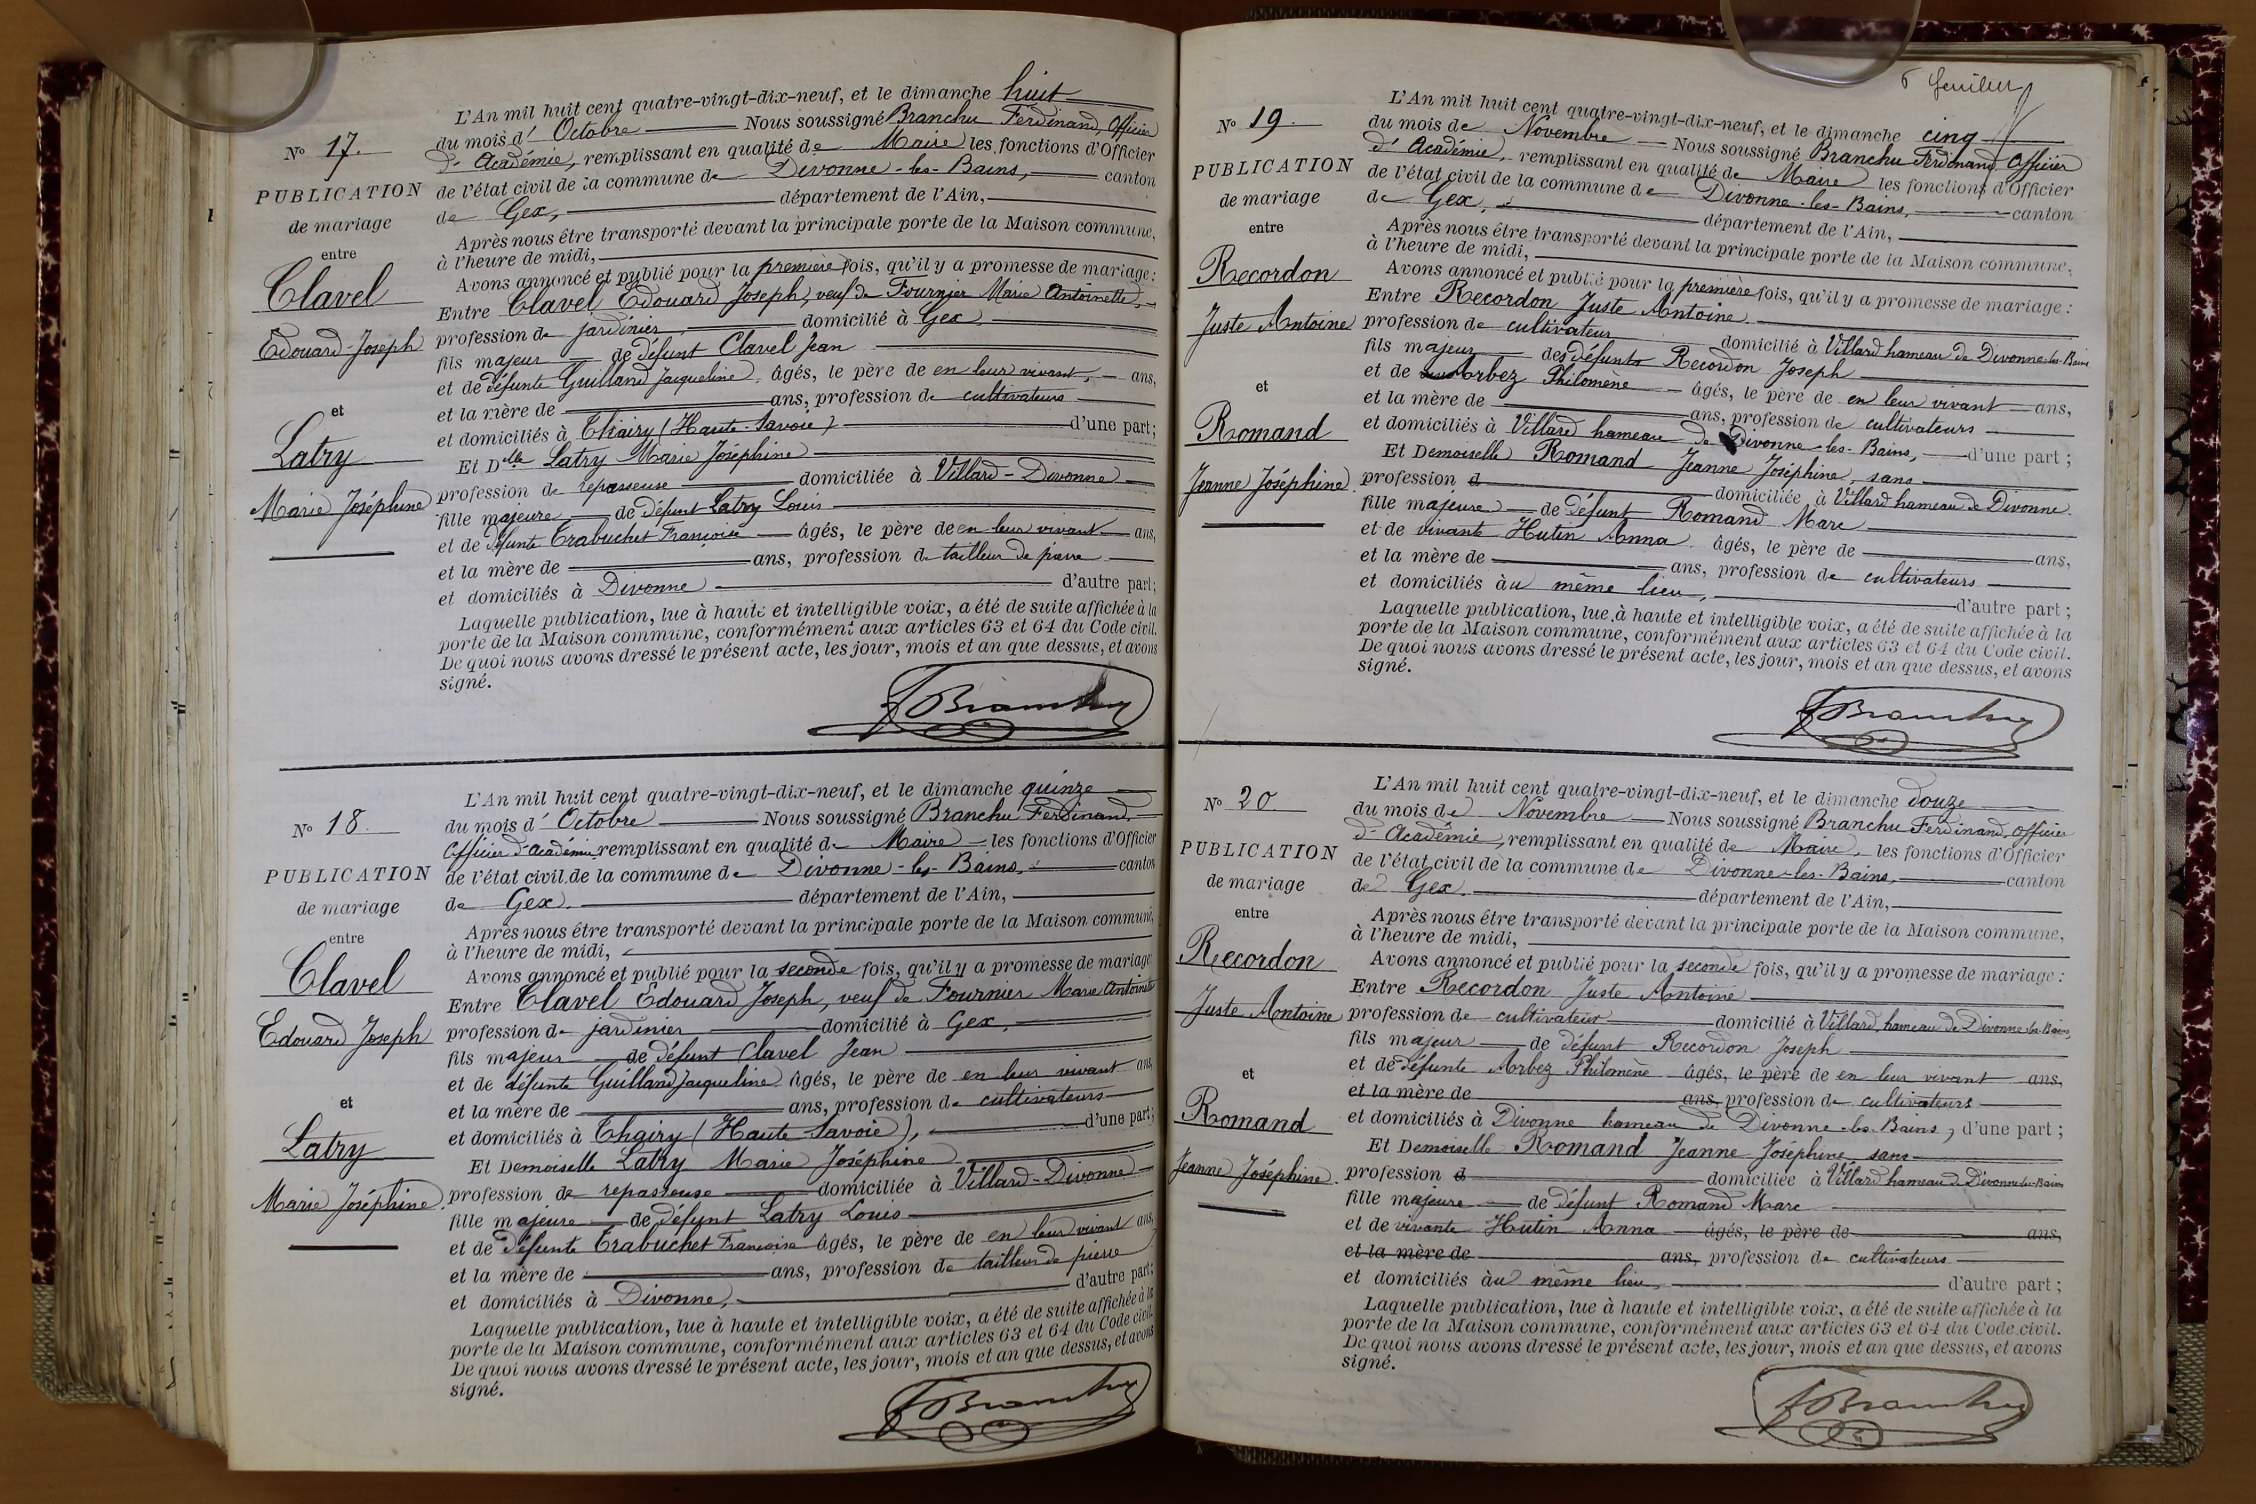 L'An mil huit cent quatre-vingt-dix-neuf, et le dimanche huit
No 17.
du mois d' Octobre Nous soussigné Branchu Ferdinand, Officier
d'Académie, remplissant en qualité de Maire les fonctions d'Officier
PUBLICATION
de l'état civil de la commune de Divonne-les-Bains, canton
de mariage
de Gex, département de l'Ain,
entre
Après nous être transporté devant la principale porte de la Maison commune,
à l'heure de midi,
Clavel
Avons annoncé et publié pour la première fois, qu'il y a promesse de mariage :
Entre Clavel Edouard Joseph, veuf de Fournier Marie Antoinette,
Edouard-Joseph
profession de jardinier domicilié à Gex
fils majeur de défunt Clavel Jean
et de défunte Guilland Jacqueline, âgés, le père de en leur vivant, ans,
et
et la mère de ans, profession de cultivateurs
et domiciliés à Thairy (Haute-Savoie) d'une part ;
Latry
Et Dlle Latry Marie Joséphine
Marie Joséphine
profession de repasseuse domiciliée à Villard-Divonne
fille majeure de défunt Latry Louis
et de défunte Trabuchet Françoise âgés, le père de en leur vivant ans,
et la mère de ans, profession de tailleur de pierre
et domiciliés à Divonne d'autre part ;
Laquelle publication, lue à haute et intelligible voix, a été de suite affichée à la
porte de la Maison commune, conformément aux articles 63 et 64 du Code civil.
De quoi nous avons dressé le présent acte, les jour, mois et an que dessus, et avons
signé.
FBranchu
L'An mil huit cent quatre-vingt-dix-neuf, et le dimanche quinze
No 18.
du mois d' Octobre Nous soussigné Branchu Ferdinand,
Officier d'Académie, remplissant en qualité de Maire les fonctions d'Officier
PUBLICATION
de l'état civil de la commune de Divonne-les-Bains, canton
de mariage
de Gex, département de l'Ain,
entre
Après nous être transporté devant la principale porte de la Maison commune,
à l'heure de midi,
Clavel
Avons annoncé et publié pour la seconde fois, qu'il y a promesse de mariage
Entre Clavel Edouard Joseph, veuf de Fournier Marie Antoinette
Edouard Joseph
profession de jardinier domicilié à Gex,
fils majeur de défunt Clavel Jean
et de défunte Guilland Jacqueline âgés, le père de en leur vivant ans,
et
et la mère de ans, profession de cultivateurs
et domiciliés à Thairy (Haute Savoie), d'une part ;
Latry
Et Demoiselle Latry Marie Joséphine
Marie Joséphine.
profession de repasseuse domiciliée à Villard-Divonne
fille majeure de défunt Latry Louis
et de défunte Trabuchet Françoise âgés, le père de en leur vivant ans,
et la mère de ans, profession de tailleur de pierre
et domiciliés à Divonne, d'autre part ;
Laquelle publication, lue à haute et intelligible voix, a été de suite affichée à la
porte de la Maison commune, conformément aux articles 63 et 64 du Code civil.
De quoi nous avons dressé le présent acte, les jour, mois et an que dessus, et avons
signé.
FBranchu
6
L'An mil huit cent quatre-vingt-dix-neuf, et le dimanche cinq
No 19.
du mois de Novembre Nous soussigné Branchu Ferdinand Officier
d'Académie, remplissant en qualité de Maire les fonctions d'Officier
PUBLICATION
de l'état civil de la commune de Divonne-les-Bains, canton
de mariage
de Gex, département de l'Ain,
entre
Après nous être transporté devant la principale porte de la Maison commune,
à l'heure de midi,
Recordon
Avons annoncé et publié pour la première fois, qu'il y a promesse de mariage :
Entre Recordon Juste Antoine
Juste Antoine
profession de cultivateur domicilié à Villard hameau de Divonne-les-Bains
fils majeur des défunts Recordon Joseph
et
et de Arbez Philomène âgés, le père de en leur vivant ans,
et la mère de ans, profession de cultivateurs
et domiciliés à Villard hameau de Divonne-les-Bains, d'une part ;
Romand
Et Demoiselle Romand Jeanne Joséphine, sans
Jeanne Joséphine.
profession d domiciliée à Villard hameau de Divonne.
fille majeure de défunt Romand Marc
et de vivante Hutin Anna âgés, le père de ans,
et la mère de ans, profession de cultivateurs
et domiciliés àu même lieu, d'autre part ;
Laquelle publication, lue à haute et intelligible voix, a été de suite affichée à la
porte de la Maison commune, conformément aux articles 63 et 64 du Code civil.
De quoi nous avons dressé le présent acte, les jour, mois et an que dessus, et avons
signé.
FBranchu
L'An mil huit cent quatre-vingt-dix-neuf, et le dimanche douze
No 20.
du mois de Novembre Nous soussigné Branchu Ferdinand, Officier
d'Académie, remplissant en qualité de Maire, les fonctions d'Officier
PUBLICATION
de l'état civil de la commune de Divonne-les-Bains, canton
de mariage
de Gex. département de l'Ain,
entre
Après nous être transporté devant la principale porte de la Maison commune,
à l'heure de midi,
Recordon
Avons annoncé et publié pour la seconde fois, qu'il y a promesse de mariage :
Entre Recordon Juste Antoine
Juste Antoine
profession de cultivateur domicilié à Villard, hameau de Divonne-les-Bains,
fils majeur de défunt Recordon Joseph
et
et de défunte Arbez Philomène âgés, le père de en leur vivant ans,
et la mère de ans, profession de cultivateurs
Romand
et domiciliés à Divonne hameau de Divonne-les-Bains, d'une part ;
Et Demoiselle Romand Jeanne Joséphine, sans
Jeanne Joséphine.
profession d domiciliée à Villard hameau de Divonne-les-Bains
fille majeure de défunt Romand Marc
et de vivante Hutin Anna âgés, le père de ans,
et la mère de ans, profession de cultivateurs
et domiciliés àu même lieu, d'autre part ;
Laquelle publication, lue à haute et intelligible voix, a été de suite affichée à la
porte de la Maison commune, conformément aux articles 63 et 64 du Code civil.
De quoi nous avons dressé le présent acte, les jour, mois et an que dessus, et avons
signé.
FBranchu